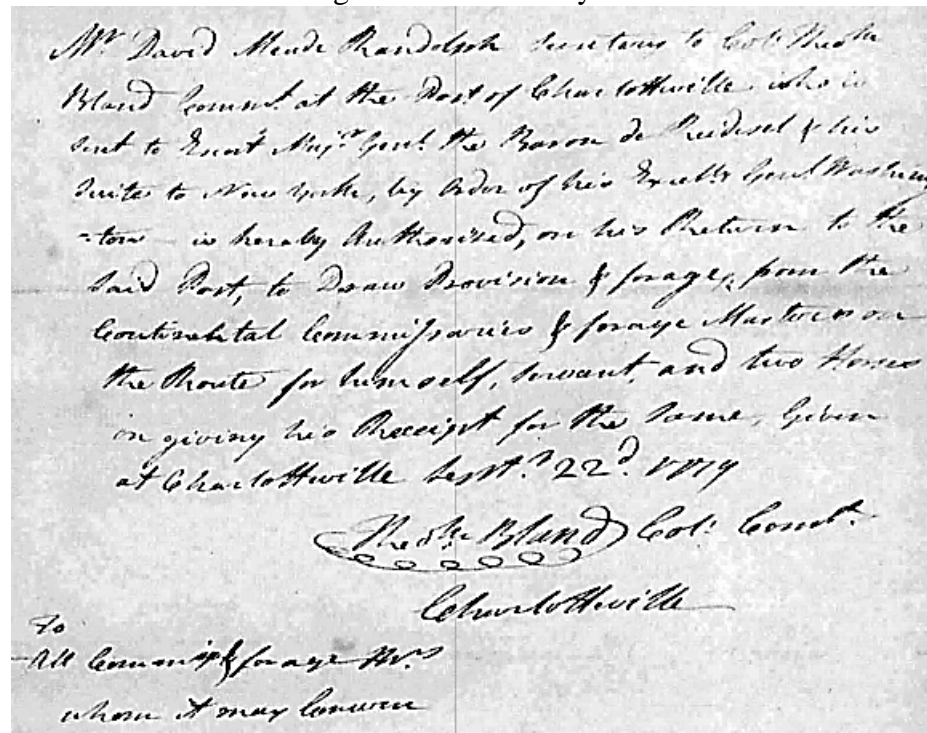 Mr David Meade Randolph Secretary to Col: Theok
Bland Commt at the Post of Charlottville who is
Sent to Escort Majr Genl the Baron de Reidesel & his
Suite to New York, by Order of his Excelly Genl Washing
-ton is hereby Authorised, on his Return to the
Said Post, to Draw Provision & forage, from the
Continental Commissaries & forage Masters on
the Route for himself, Servant, and two Horses
on giving his Receipt for the Same, Given
at Charlottville Septr 22d 1779
Theok Bland Col: Comt
Charlottville
To
All Commis & forage Mrs
whom it may Concern